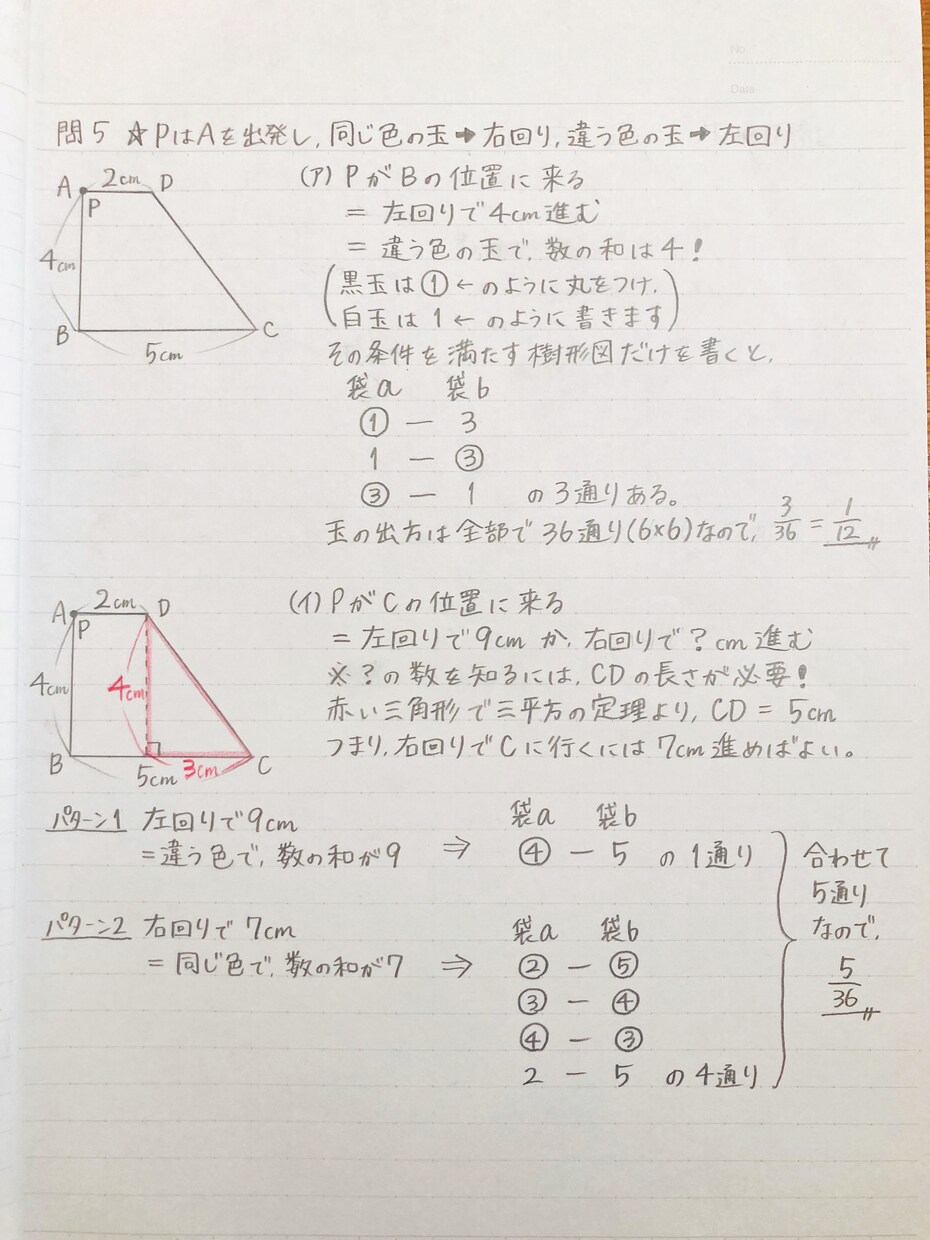 No
Date
問5 ☆PはAを出発し,同じ色の玉→右回り,違う色の玉→左回り
A 2cm D
P
4cm
B C
5cm
(ア) PがBの位置に来る
= 左回りで4cm進む
= 違う色の玉で,数の和は4!
(黒玉は①←のように丸をつけ,
白玉は1←のように書きます)
その条件を満たす樹形図だけを書くと,
袋a 袋b
① — 3
1 — ③
③ — 1 の3通りある。
玉の出方は全部で36通り(6×6)なので, 3/36 = 1/12
A 2cm D
P
4cm 4cm
B C
5cm 3cm
(イ) PがCの位置に来る
= 左回りで9cmか,右回りで?cm進む
※?の数を知るには,CDの長さが必要!
赤い三角形で三平方の定理より,CD = 5cm
つまり,右回りでCに行くには7cm進めばよい。
パターン1 左回りで9cm
=違う色で,数の和が9 ⇒
袋a 袋b
④ — 5 の1通り
パターン2 右回りで7cm
= 同じ色で,数の和が7 ⇒
袋a 袋b
② — ⑤
③ — ④
④ — ③
2 — 5 の4通り
合わせて
5通り
なので,
5/36